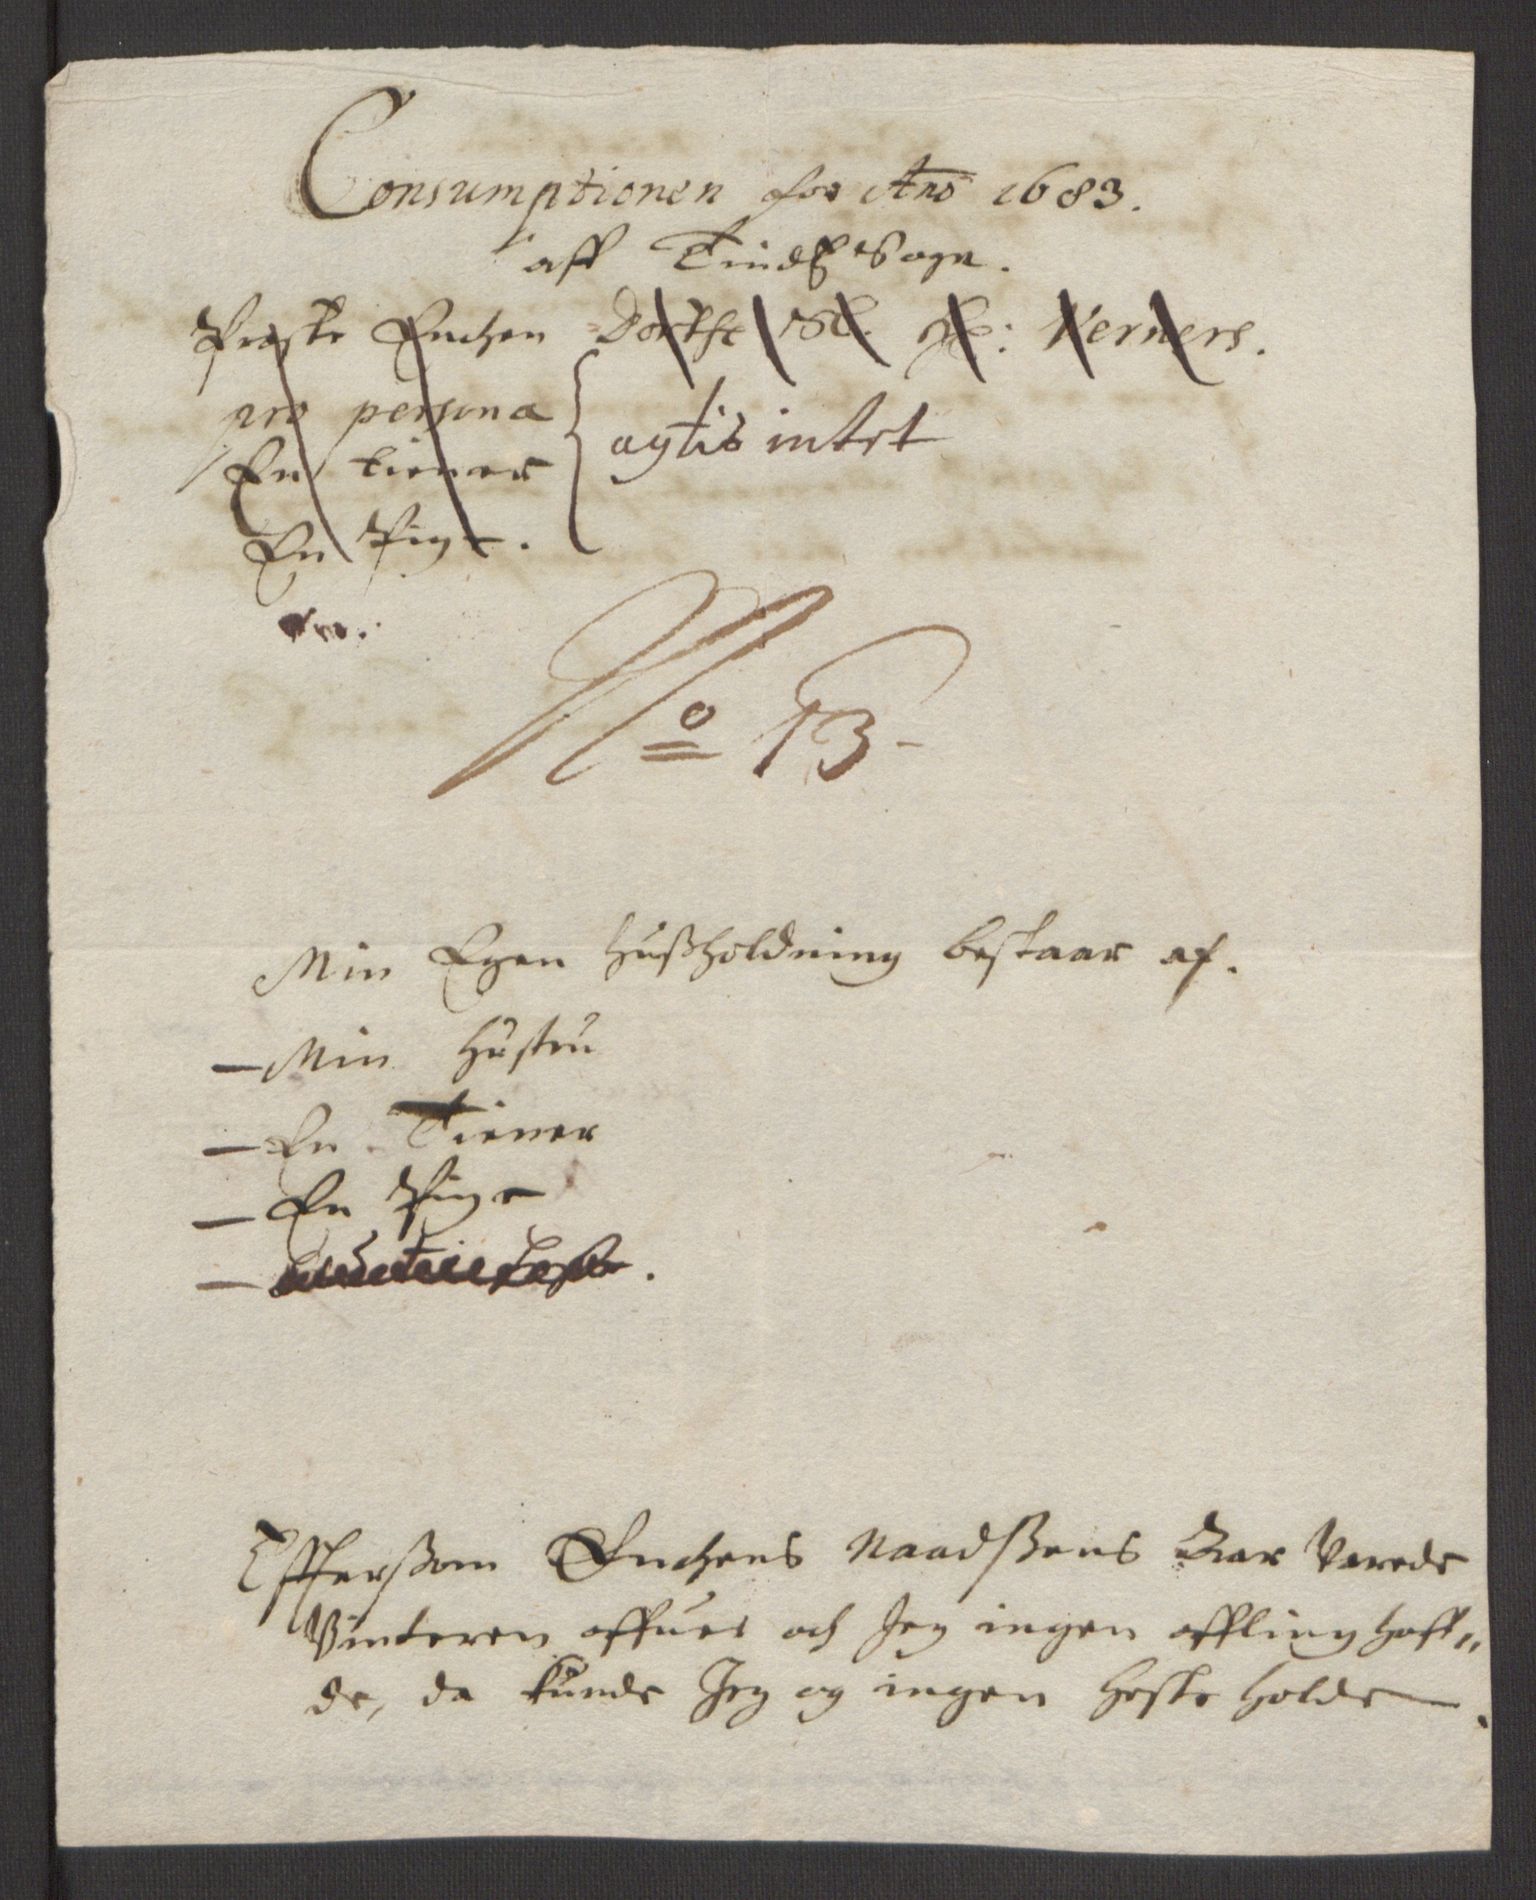 Consumptionen for Ano 1683.
aff Tindß Sogn.
Præste Enchen Dorthe Sl. Hr: Verners.
pro persona
En tiener
En Pige.
agtis intet
No 13
Min Egen hußholdning bestaar af.
Min hustru
En Tiener
En Pige
Effterßom Enchens Naadßens Aar varede
Vinteren offuer och Jeg ingen affling haff„
de, da kunde Jeg og ingen heste holde.